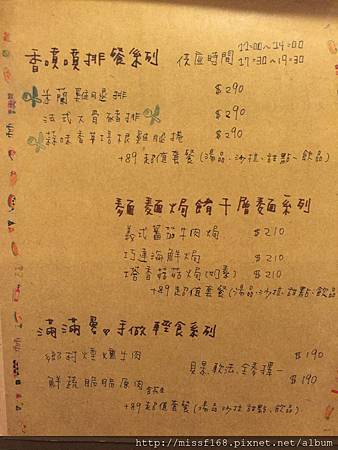 香噴噴排餐系列 供應時間 11:00~14:00
17:30~19:30
米蘭雞腿排 $290
法式大骨豬排 $290
蒜味香草 雞腿捲 $290
+89 超值套餐(湯品、沙拉、甜點、飲品)
麵麵焗餚千層麵系列
義式蕃茄牛肉焗 $210
巧達海鮮焗 $210
塔香菇菇焗(奶素) $210
+89 超值套餐(湯品、沙拉、甜點、飲品)
滿滿 手做輕食系列
鄉村煙燻牛肉 貝果、軟法、全麥擇一 $190
鮮蔬脆脆 肉 $190
+89 超值套餐(湯品、沙拉、甜點、飲品)
http://missf168.pixnet.net/album